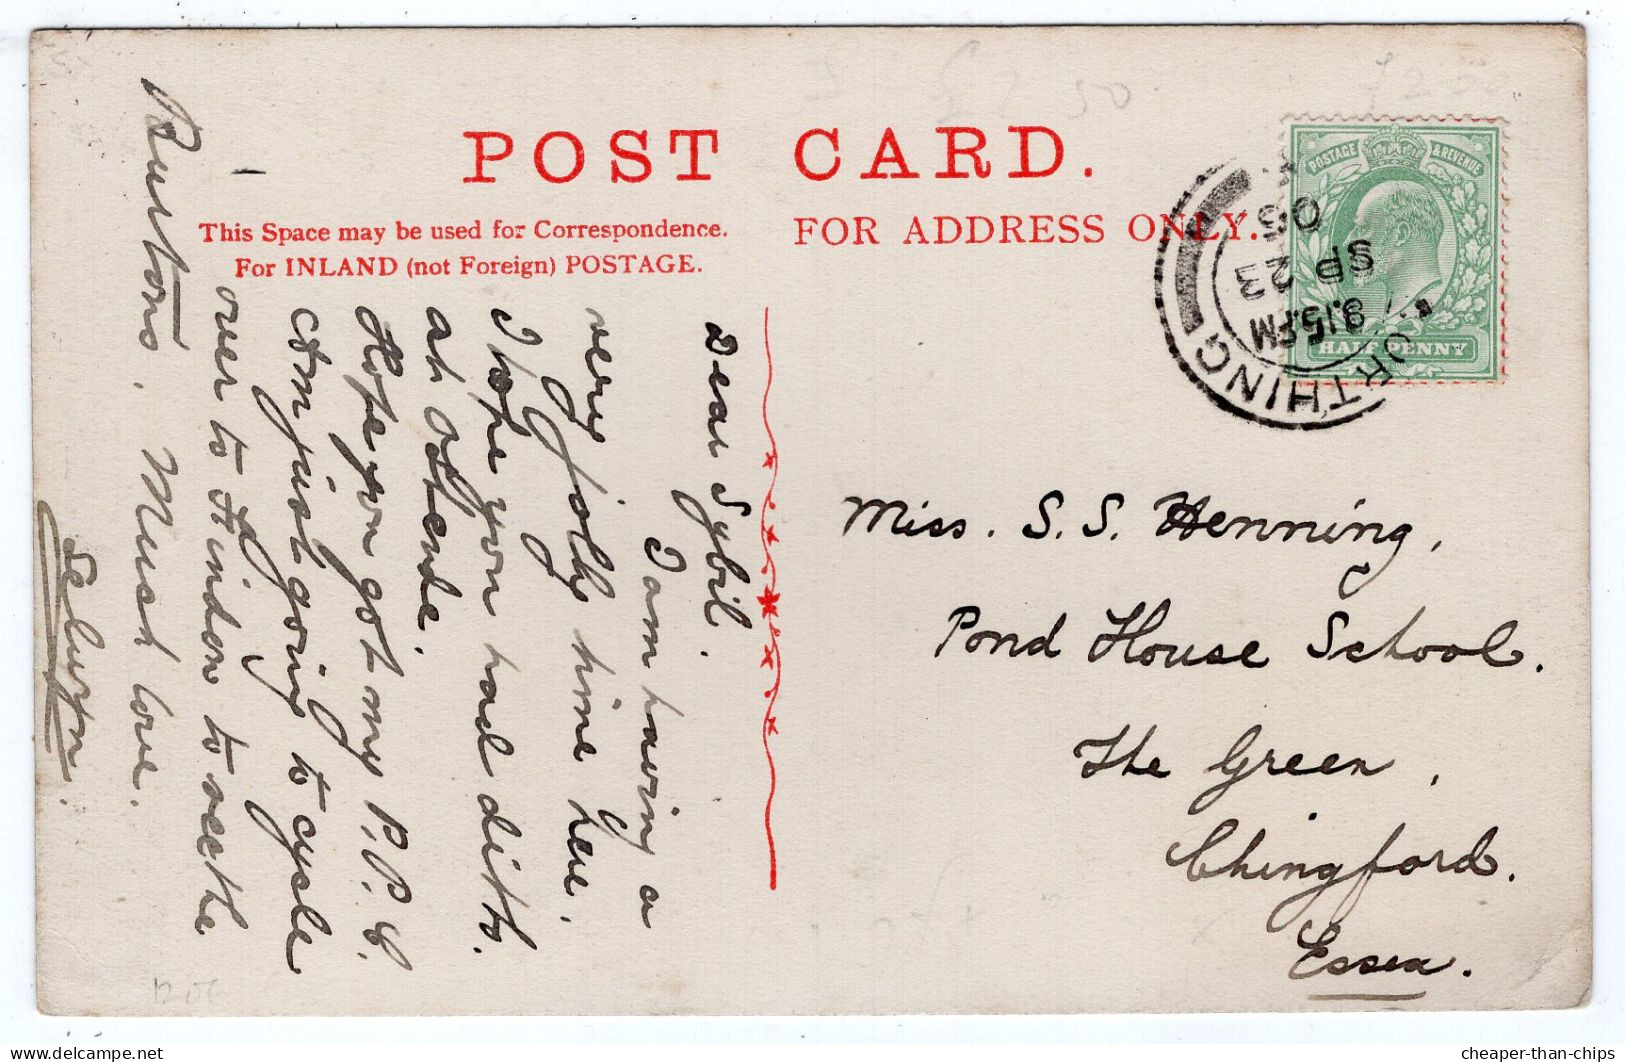 POST CARD.
This Space may be used for Correspondence.
For INLAND (not Foreign) POSTAGE.
FOR ADDRESS ONLY.
POSTAGE & REVENUE
HALF PENNY
WORTHING
9.15 PM
SP 23
05
Dear Sybil.
I am having a
very jolly time here.
I hope you had ditto.
at Ostende.
Hope you got my P.P.C.
I am just going to cycle
over to Findon to see the
Burtons. Much love.
Selwyn.
Miss. S. S. Henning,
Pond House School.
The Green,
Chingford.
Essex.
£2.50
1206
cheaper-than-chips
www.delcampe.net